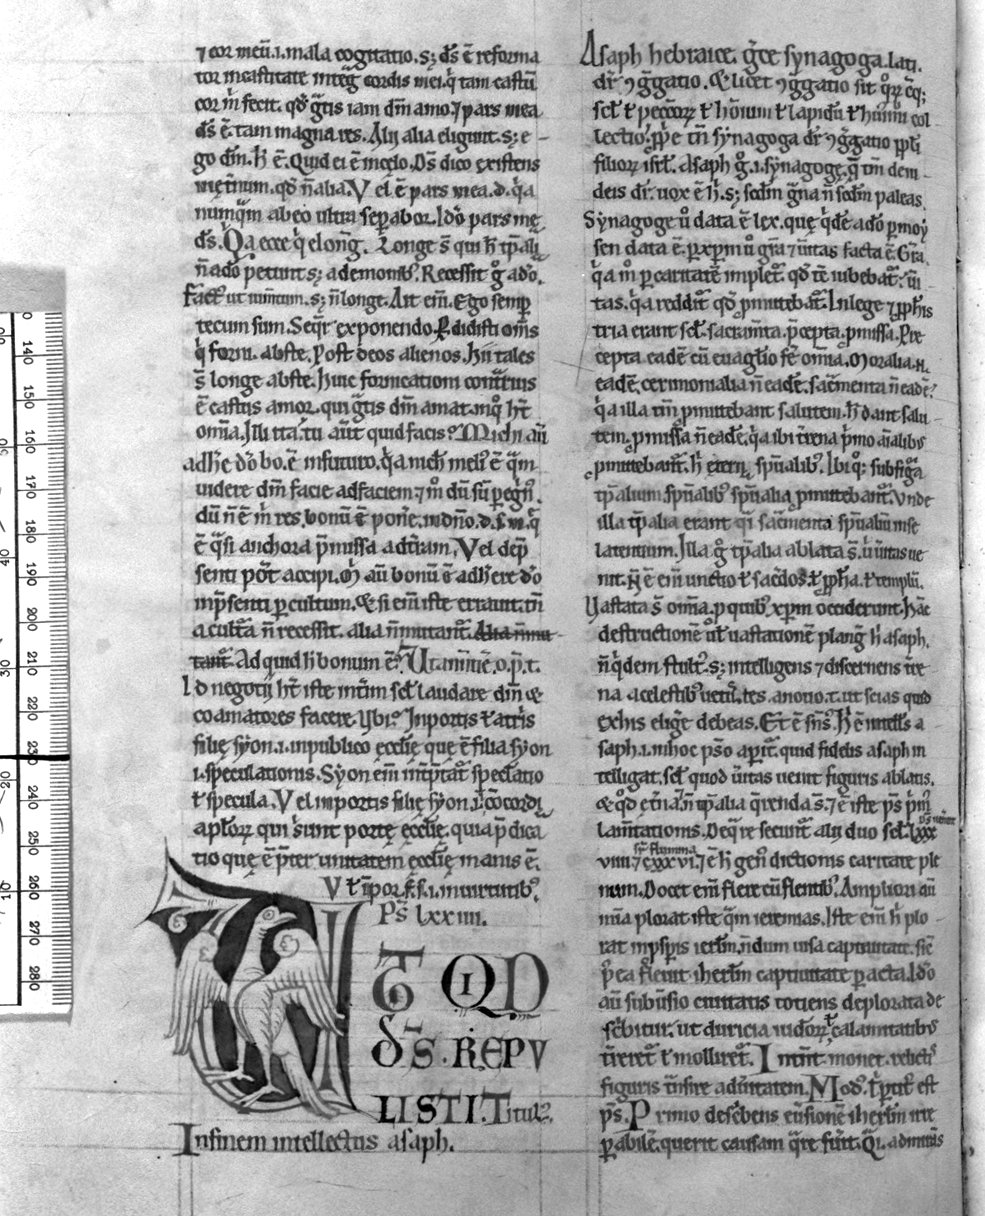 ⁊ cor meū.i. mala cogitatio. s; d̄s ē reforma
tor in castitate integ̃ cordis mei. q̇ tam castū
cor m̄ fecit. qđ g̃tis iam dm̄ amo. ⁊ pars mea
d̄s ē. tam magna res. Alij alia eligunt. s; e-
go dm̄. h̄ ē. Quid ei ē in celo. Ds̄ dico existens
qđ n̄ alia. Vel ē pars mea. d. q̇a
nunq̄m ab eo ultra separabor. Ido pars mę
d̄s. Qa ecce q̇ elong̃. Longe s̄ qui h̄ tp̄alia
n̄ a dō petunt s; a demonib;. Recessit g̊ a dō.
s; n̄ longe. Ait em̄. Ego semp
tecum sum. Seqr̃ exponendo. Pdidisti om̄s
q̇ forni. abs te. Post deos alienos. Hii tales
s̄ longe abs te. Huic fornicationi contrius
ē castus amor. qui g̃tis dm̄ amat. in q̊ h̄t
om̄ia. Illi ita. tu aūt quid facis? Michi aū
adhe dō bo. ē in futuro. q̇a mch meli⁹ ē q̄m
uidere dm̄ facie ad faciem. ⁊ m̊ dū sū pegn̄.
dū n̄ ē m̄ res. bonū ē pone. in dn̄o. d. s. m. q̇
ē q̄si anchora p̄missa ad tr̄am. Vel de p̄
senti pōt accipi. M aū bonū ē adherē dō
in p̄senti p cultum. Et si em̄ iste errauit. tn̄
a cult̄a n̄ recessit. alia n̄ mutant̃. Alia n̄ mu
tant̃. Ad quid h̄ bonum ē? Ut annūtiē. o. p̄. t.
Id negotij h̄t iste int̄im scl̃ laudare dm̄ &
coamatores facere. Ubi? In portis t atriis
filię syon. i. in publico ecclię que ē filia syon
.i. speculationis. Syon em̄ int̄ptat̃ speclatio
t specula. Vel in portis filię syon. i. cōcordi
aplor̄ qui sunt portę ecclię. quia p̄dica
tio quę ē p̄ter unitatem ecclię inanis ē.
V t ī por. f. s. i. in uirtutib;.
Ps̄ lxxiiii.
VT QID
D̄S. REPV
LISTI. Titul⁹.
In finem intellectus asaph.
Asaph hebraice. g̃ce synagoga. lati.
dr̃ ꝯg̃gatio. Et licet ꝯg̃gatio sit
scl̃ t peccor̄ t hoīum t lapidū t hui⁹mi col
lectio. p̄pe tn̄ synagoga dr̃ ꝯg̃gatio ppl̄i
filior̄ isrl̃. Asaph g̊. i. synagoge. q̄ tm̄ dein
deis dr̃. uox ē h̄. s; scdm̄ g̃na n̄ scdm̄ paleas.
Synagoge ů data ē lex. quę q̇dē a dō p moy
sen data ē. p xp̄m ů gr̄a ⁊ ůitas facta ē. Gr̄a.
q̇a m̊ p caritatē implet̃. qđ tē iubebat̃. ůi
tas. q̇a reddit̃ qđ pmittebat̃. In lege ⁊ pphis
tria erant scl̃. sacram̄ta. p̄cepta. pmissa. Pre
cepta eadē cū euag̃lio fē om̄ia. Moralia. n.
eadē. cerimonialia n̄ eadē. sac̃menta n̄ eadē?
q̇a illa tm̄ pmittebant salutem. h̄ dant salu
tem. pmissa n̄ eadē. q̇a ibi trena p̄mo aīalibs
pmittebant̃. h̄ etern̄. spūalib;. Ibi q; sub figa
tp̄alium spūalib; spūalia pmittebant̃. Unde
illa tp̄alia erant q̇i sac̃menta spūaliū in se
latentium. Illa g̊ tp̄alia ablata s̄. ů ůitas ue
nit. N̄ ē em̄ unctio t sac̃dos. t ppha. t templū.
Uastata s̄ om̄ia. p quib; xp̄m occiderunt. Hāc
destructionē ul̃ uastationē plang̃ h̄ asaph.
n̄ q̇dem stult⁹. s; intelligens ⁊ discernens t̃re
na a celestib; ueti⁹. tes. a nouo. t. ut scias quid
ex his elig̃e debeas. Et ē sn̄s. H̄ ē intell̃s a
saph. i. in hoc ps̄o apit̃. quid fidelis asaph in
telligat. scl̃ quod ůitas uenit figuris ablatis.
& qđ et̃na. n̄ tp̄alia q̇renda s̄. ⁊ ē iste ps̄ p̄m⁹
lam̄tationis. De q̇ re secunt̃ alij duo scl̃. lxxx
ds uener
viiii. ⁊ cxxxvi. ⁊ ē h̄ gen⁹ dictionis caritate ple
sr̃ flumina
num. Docet em̄ flere cū flentib;. Ampliori aū
mīa plorat iste q̄m ieremias. Iste em̄ h̄ plo
rat in psp̄is ierl̃m. n̄dum uisa captiuitate. sic̄
p̊ea fleuit iherl̃m captiuitate pacta. Ido
aū subůsio ciuitatis totiens deplorata de
sc̃bitur. ut duricia iudor̄ t calamitatibs
t̃reret̃ t molliret̃. Intūt. monet. relictis
figuris t̃nsire ad ůitatem. Mod⁹. t̃ptit⁹ est
ps̄. Primo desc̃bens eůsionē iherl̃m irre
pabilē. querit causam q̄re fuit. Qi. admitis